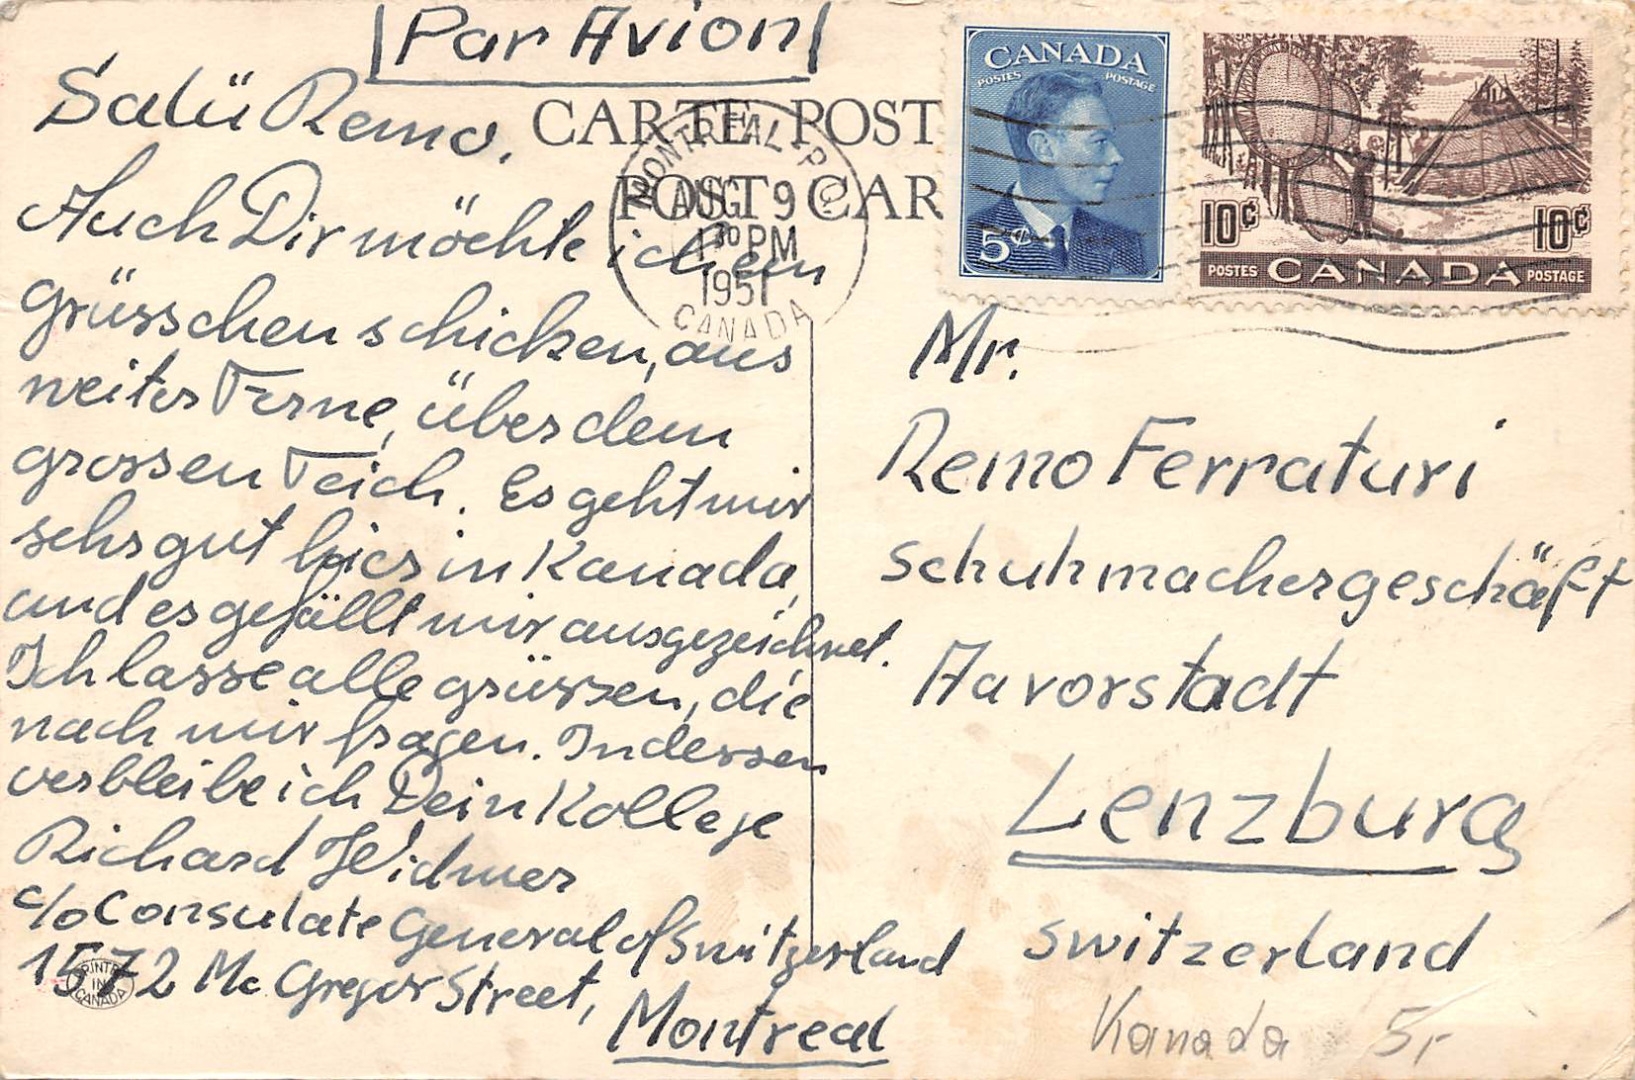 Par Avion
CARTE POST
POST CAR
Salü Remo.
Auch Dir möchte ich ein
grüsschen schicken, aus
weiter Ferne, über dem
grossen Teich. Es geht mir
sehr gut hier in Kanada,
und es gefällt mir ausgezeichnet.
Ich lasse alle grüssen, die
nach mir fragen. Indessen
verbleibe ich Dein Kollege
Richard Widmer
c/o Consulate General of Switzerland
1572 Mc Gregor Street,
Montreal
PRINTED
IN
CANADA
MONTREAL P.Q.
AUG 9
30 PM
1951
CANADA
CANADA
POSTES POSTAGE
5¢
10¢ 10¢
POSTES CANADA POSTAGE
Mr.
Remo Ferraturi
Schuhmachergeschäft
Aavorstadt
Lenzburg
Switzerland
Kanada 5,-